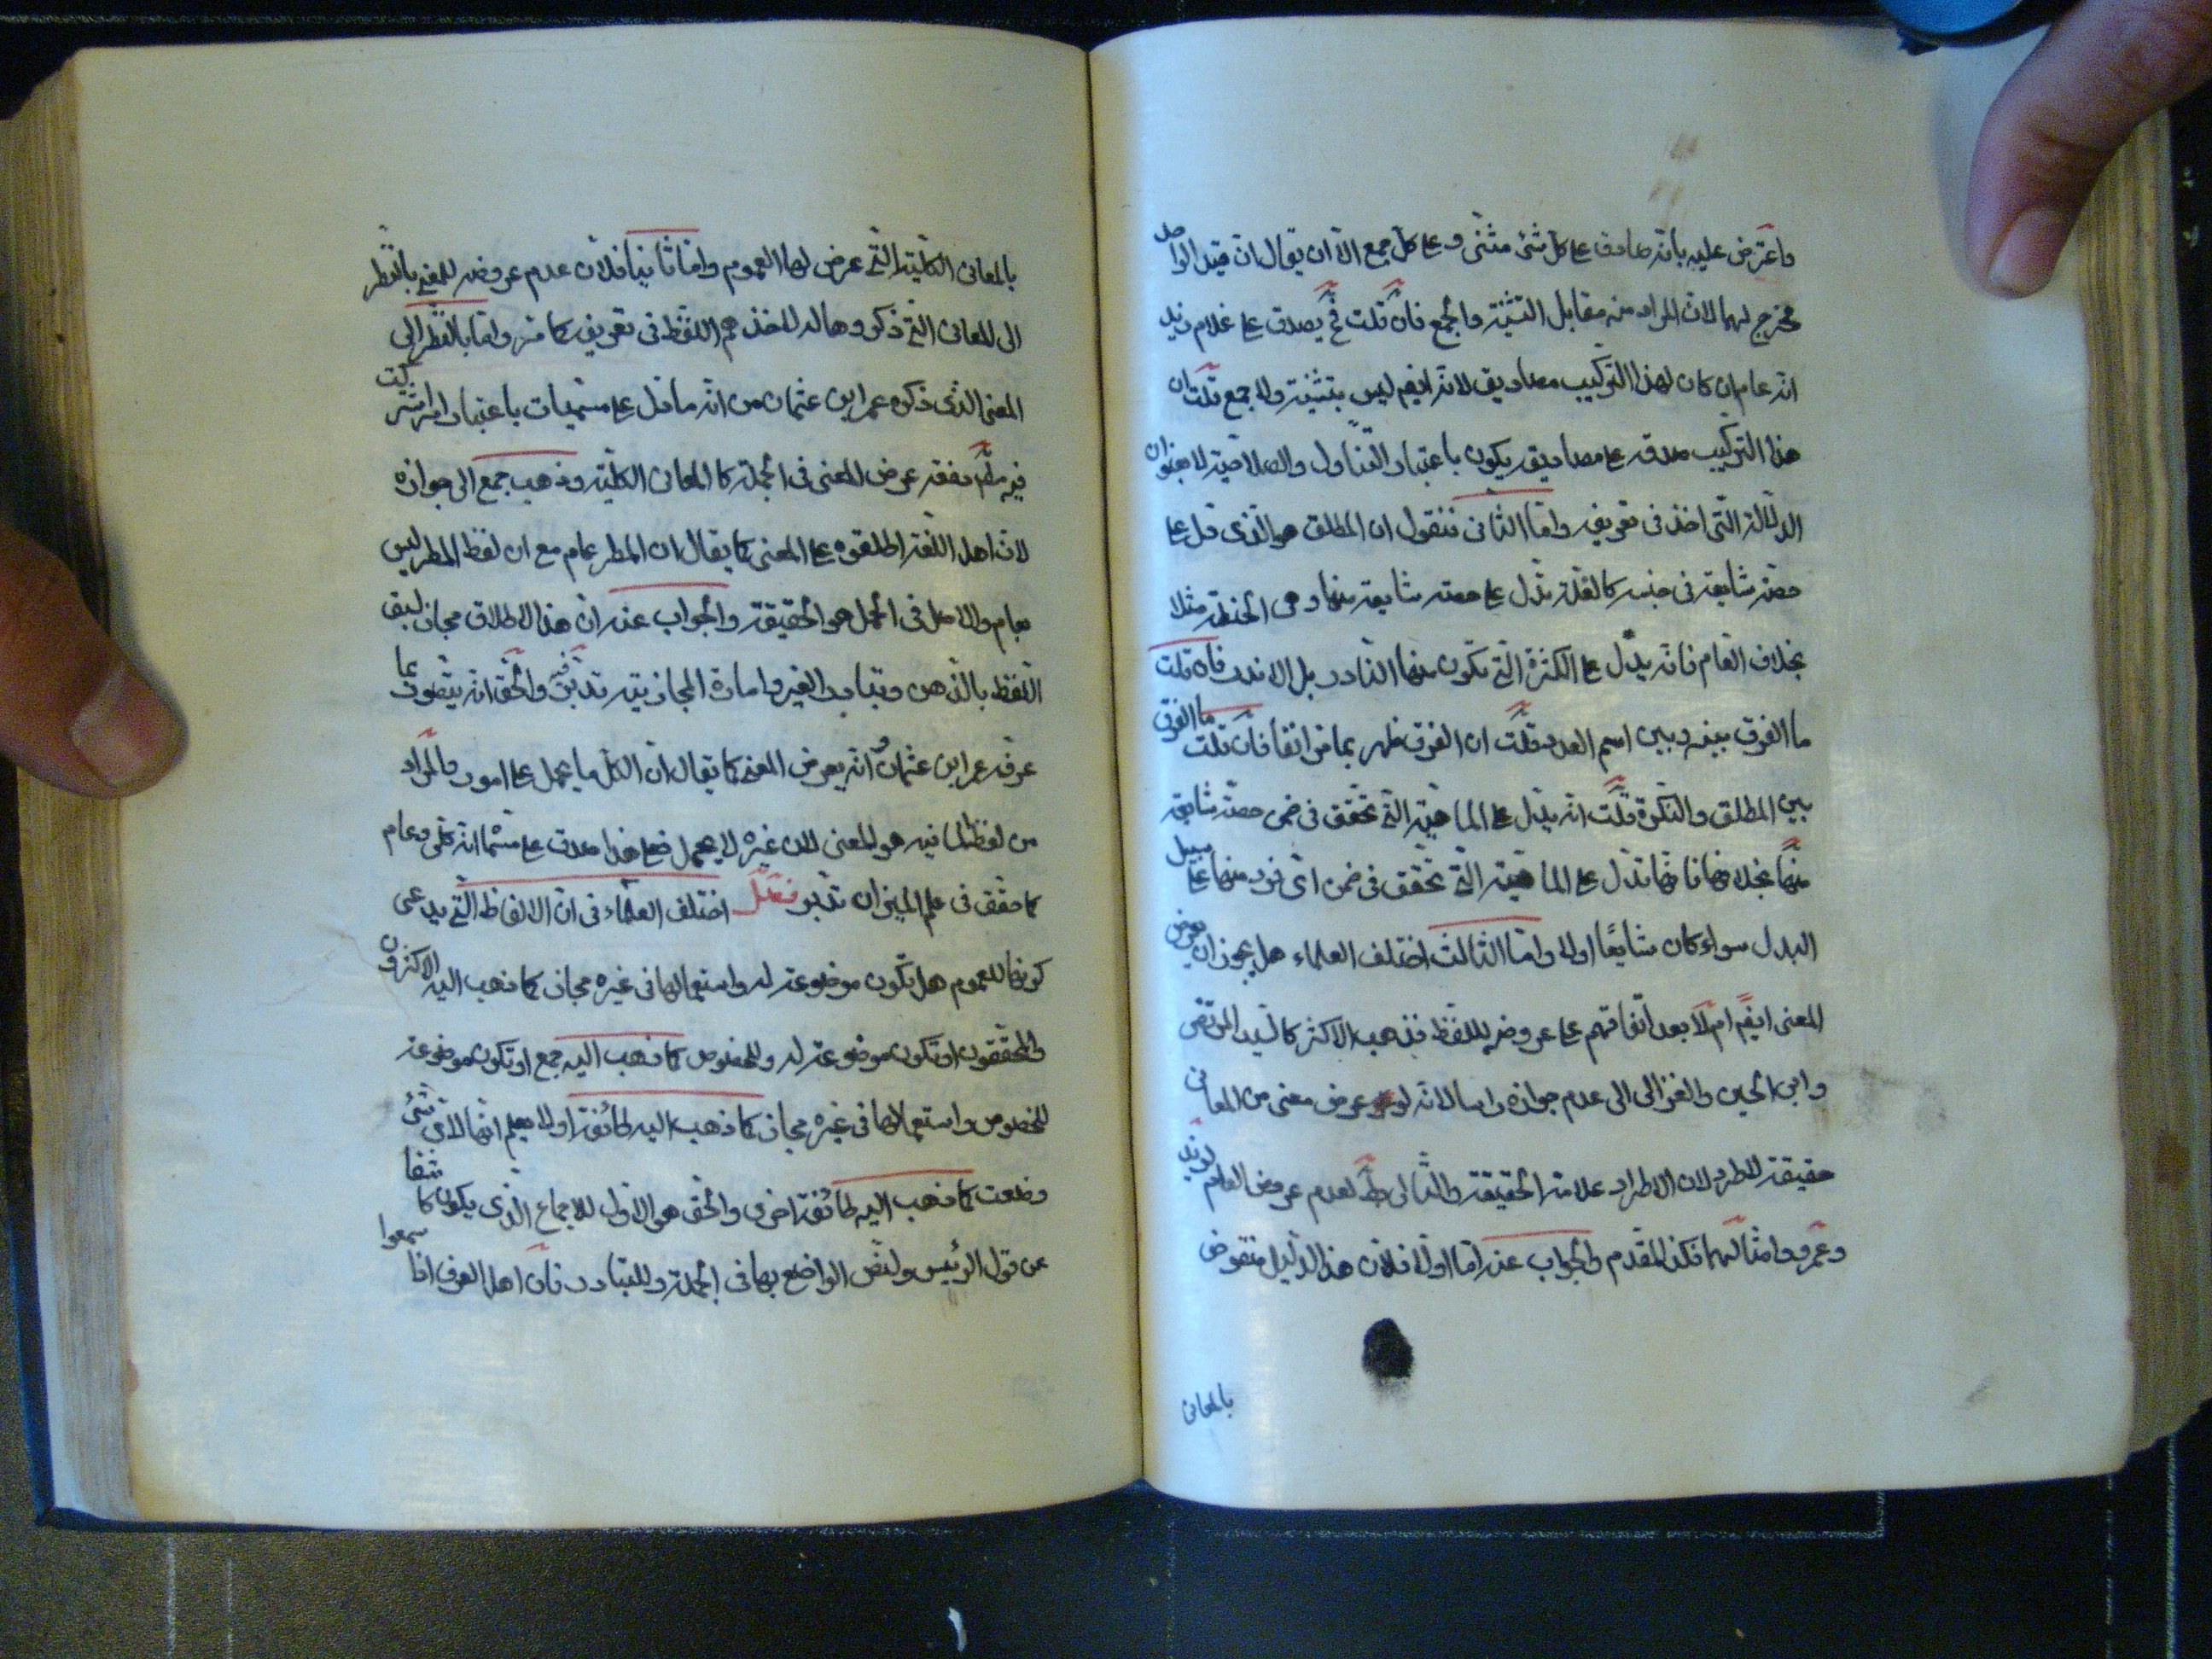 واعترض عليه بأنه صادق على كل شئ مثنى وعلى كل جمع الا ان يقال ان قيد الواحد
مخرج لهما لان المراد منه مقابل التثنية والجمع فان قلت ثم يصدق على غلام زيد
انه عام ان كان لهذا التركيب مصاديق لانه ايضم ليس بتثنية ولا جمع قلت ان
هذا التركيب صدقه على مصاديق يكون باعتبار التناول والصلاحية لا بعنوان
الدلالة التى اخذ فى تعريفه واما الثانى فنقول ان المطلق هو الذى دل على
حصة شايعة فى جنسه كالغلة تدل على حصة شايعة منها وهى الحنطة مثلا
بخلاف العام فانه يدل على الكثرة التى تكون منها النادر بل الاندر فان قلت
ما الفرق بينه وبين اسم العدد قلت ان الفرق ظهر بما مر انفا فان قلت ما الفرق
بين المطلق والنكرة قلت انه يدل على الماهية التى تحقق فى ضمن حصة شايعة
منها بخلافها فانها تدل على الماهية التى تحقق فى ضمن اى فرد منها على سبيل
البدل سواء كان شايعا اولا واما الثالث اختلف العلماء هل يجوز ان يعرض
المعنى ايضم ام لا بعد اتفاقهم على عروضه للفظ فذهب الاكثر كالسيد المرتضى
وابى الحسين والغزالى الى عدم جوازه راسا لانه لو عرض معنى من المعانى
حقيقة للطرد لان الاطراد علامة الحقيقة والتالى بط لعدم عروض العام لزيد
وعمرو وامثالهما فكذا المقدم والجواب عنه اما اولا فلان هذا الدليل منقوض
بالمعانى
بالمعانى الكلية التى عرض لها العموم واما ثانيا فلان عدم عروضه للمعنى بالنظر
الى المعانى التى ذكروها له لاخذهم اللفظ فى تعريفه كما مر واما بالنظر الى
المعنى الذى ذكره عمر ابن عثمان من انه ما دل على مسميات باعتبار امر اشتركت
فيه مطم فقد عرض المعنى فى الجملة كالمعانى الكلية وذهب جمع الى جوازه
لان اهل اللغة اطلقوه على المعنى كما يقال ان المطر عام مع ان لفظ المطر ليس
بعام والاصل فى الحمل هو الحقيقة والجواب عنه ان هذا الاطلاق مجاز لسبق
اللفظ بالذهن وتبادر الغير وامارة المجازية تدبر فيه والحق انه يتصور بما
عرفه عمر ابن عثمان انه يعرض المعنى كما يقال ان الكل ما يحمل على امور والمراد
من لفظ الما فيه هو المعنى لان غيره لا يحمل فعلى هذا صدق على مثله انه كلى وعام
كما حقق فى علم الميزان تدبر فصل اختلف العلماء فى ان الالفاظ التى يدعى
كونها للعموم هل تكون موضوعة له واستعمالها فى غيره مجاز كما ذهب اليه الاكثرون
والمحققون او تكون موضوعة له وللخصوص كما ذهب اليه جمع او تكون موضوعة
للخصوص واستعمالها فى غيره مجاز كما ذهب اليه طائفة اولا يعلم انها لاى شئ
وضعت كما ذهب اليه طائفة اخرى والحق هو الاول للاجماع الذى يكون كاشفا
عن قول الرئيس ولنص الواضع بها فى الجملة وللتبادر فان اهل العرف اذا سمعوا